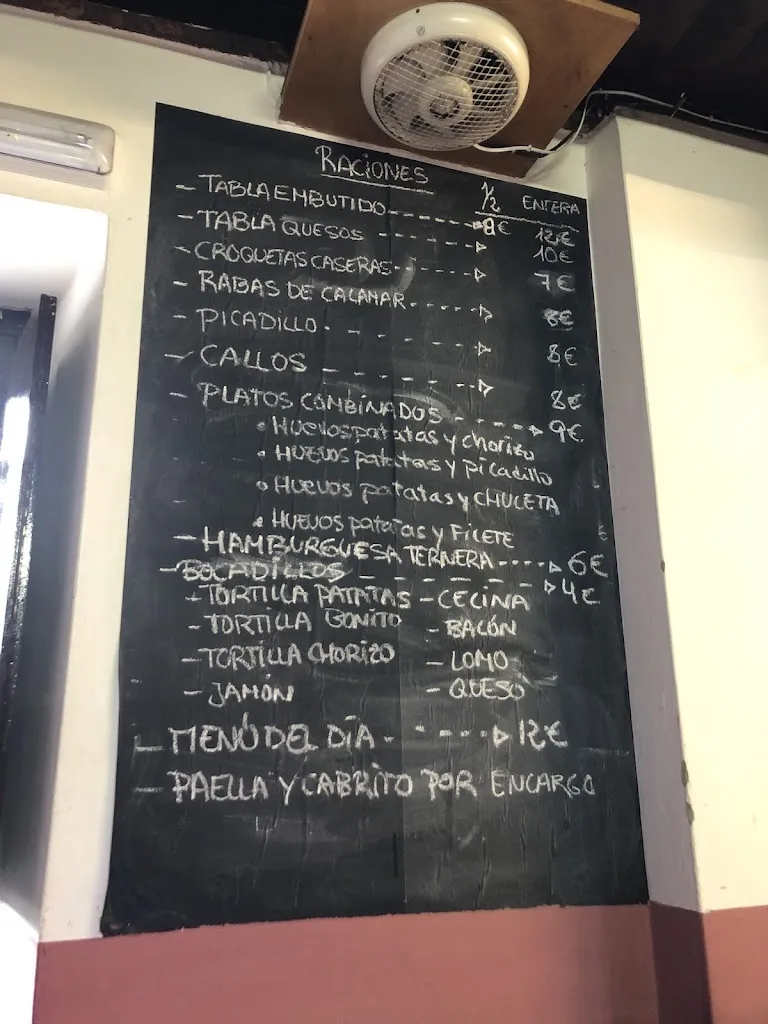 RACIONES
1/2 ENTERA
- TABLA EMBUTIDO - - - - - - 8€ 12€
- TABLA QUESOS - - - - - - 10€
- CROQUETAS CASERAS - - - - - - 7€
- RABAS DE CALAMAR - - - - - - 8€
- PICADILLO - - - - - - 8€
- CALLOS - - - - - - 8€
- PLATOS COMBINADOS - - - - - - 9€
• HUEVOS patatas y chorizo
• HUEVOS patatas y picadillo
• HUEVOS patatas y CHULETA
• HUEVOS patatas y FILETE
- HAMBURGUESA TERNERA - - - - 6€
- BOCADILLOS - - - - - - 4€
- TORTILLA PATATAS - CECINA
- TORTILLA BONITO - BACÓN
- TORTILLA CHORIZO - LOMO
- JAMÓN - QUESO
- MENÚ DEL DÍA - - - - - 12€
- PAELLA Y CABRITO POR ENCARGO